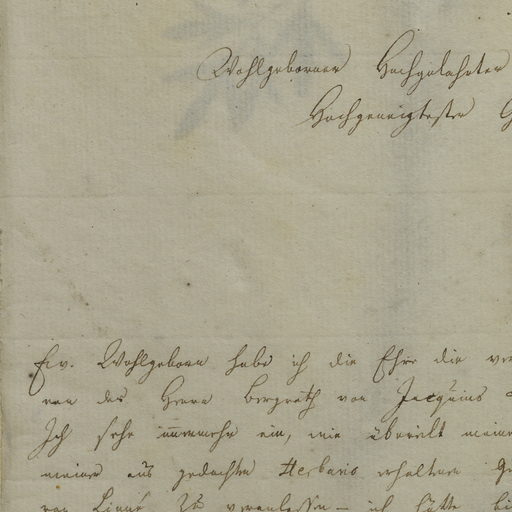 Wohlgeborner Hochgelahrter
Hochgeneigtester G
Ew. Wohlgeborn habe ich die Ehre die ver
von des Herrn Bergrath von Jacquins
Ich sehe nunmehr ein, wie übereilt meine
meiner aus gedachten Herbario erhaltenen
von Linné zu veranlassen – ich hätte bi